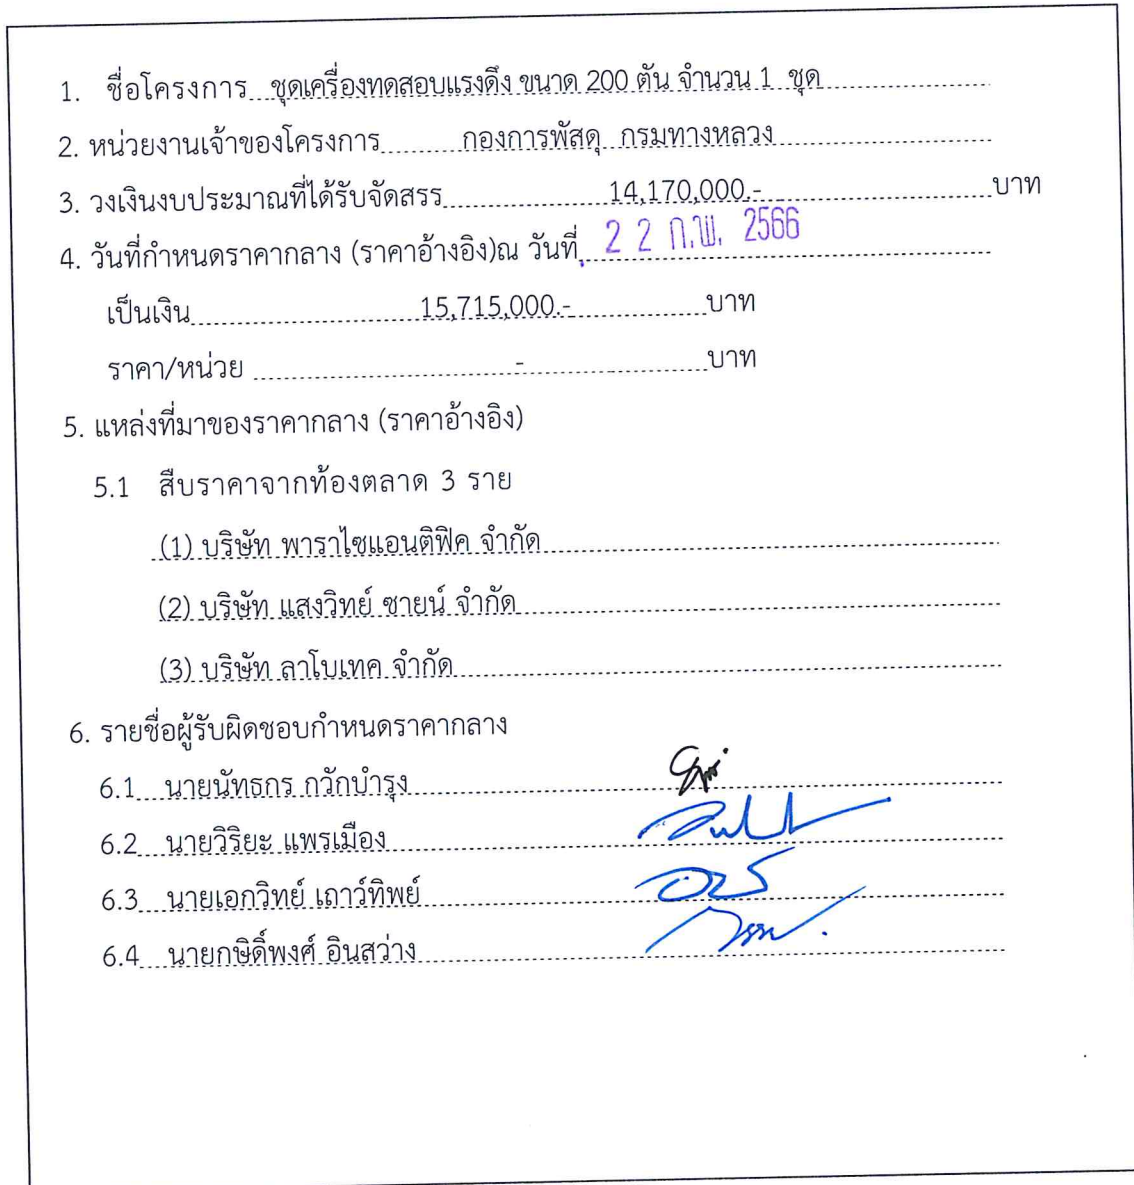 1. ชื่อโครงการ ชุดเครื่องทดสอบแรงดึง ขนาด 200 ตัน จำนวน 1 ชุด
2. หน่วยงานเจ้าของโครงการ กองการพัสดุ กรมทางหลวง
3. วงเงินงบประมาณที่ได้รับจัดสรร 14,170,000.- บาท
4. วันที่กำหนดราคากลาง (ราคาอ้างอิง)ณ วันที่ 22 ก.พ. 2566
เป็นเงิน 15,715,000.- บาท
ราคา/หน่วย - บาท
5. แหล่งที่มาของราคากลาง (ราคาอ้างอิง)
5.1 สืบราคาจากท้องตลาด 3 ราย
(1) บริษัท พาราไซแอนติฟิค จำกัด
(2) บริษัท แสงวิทย์ ซายน์ จำกัด
(3) บริษัท ลาโบเทค จำกัด
6. รายชื่อผู้รับผิดชอบกำหนดราคากลาง
6.1 นายนัทธกร กวักบำรุง
6.2 นายวิริยะ แพรเมือง
6.3 นายเอกวิทย์ เถาว์ทิพย์
6.4 นายกษิดิ์พงศ์ อินสว่าง